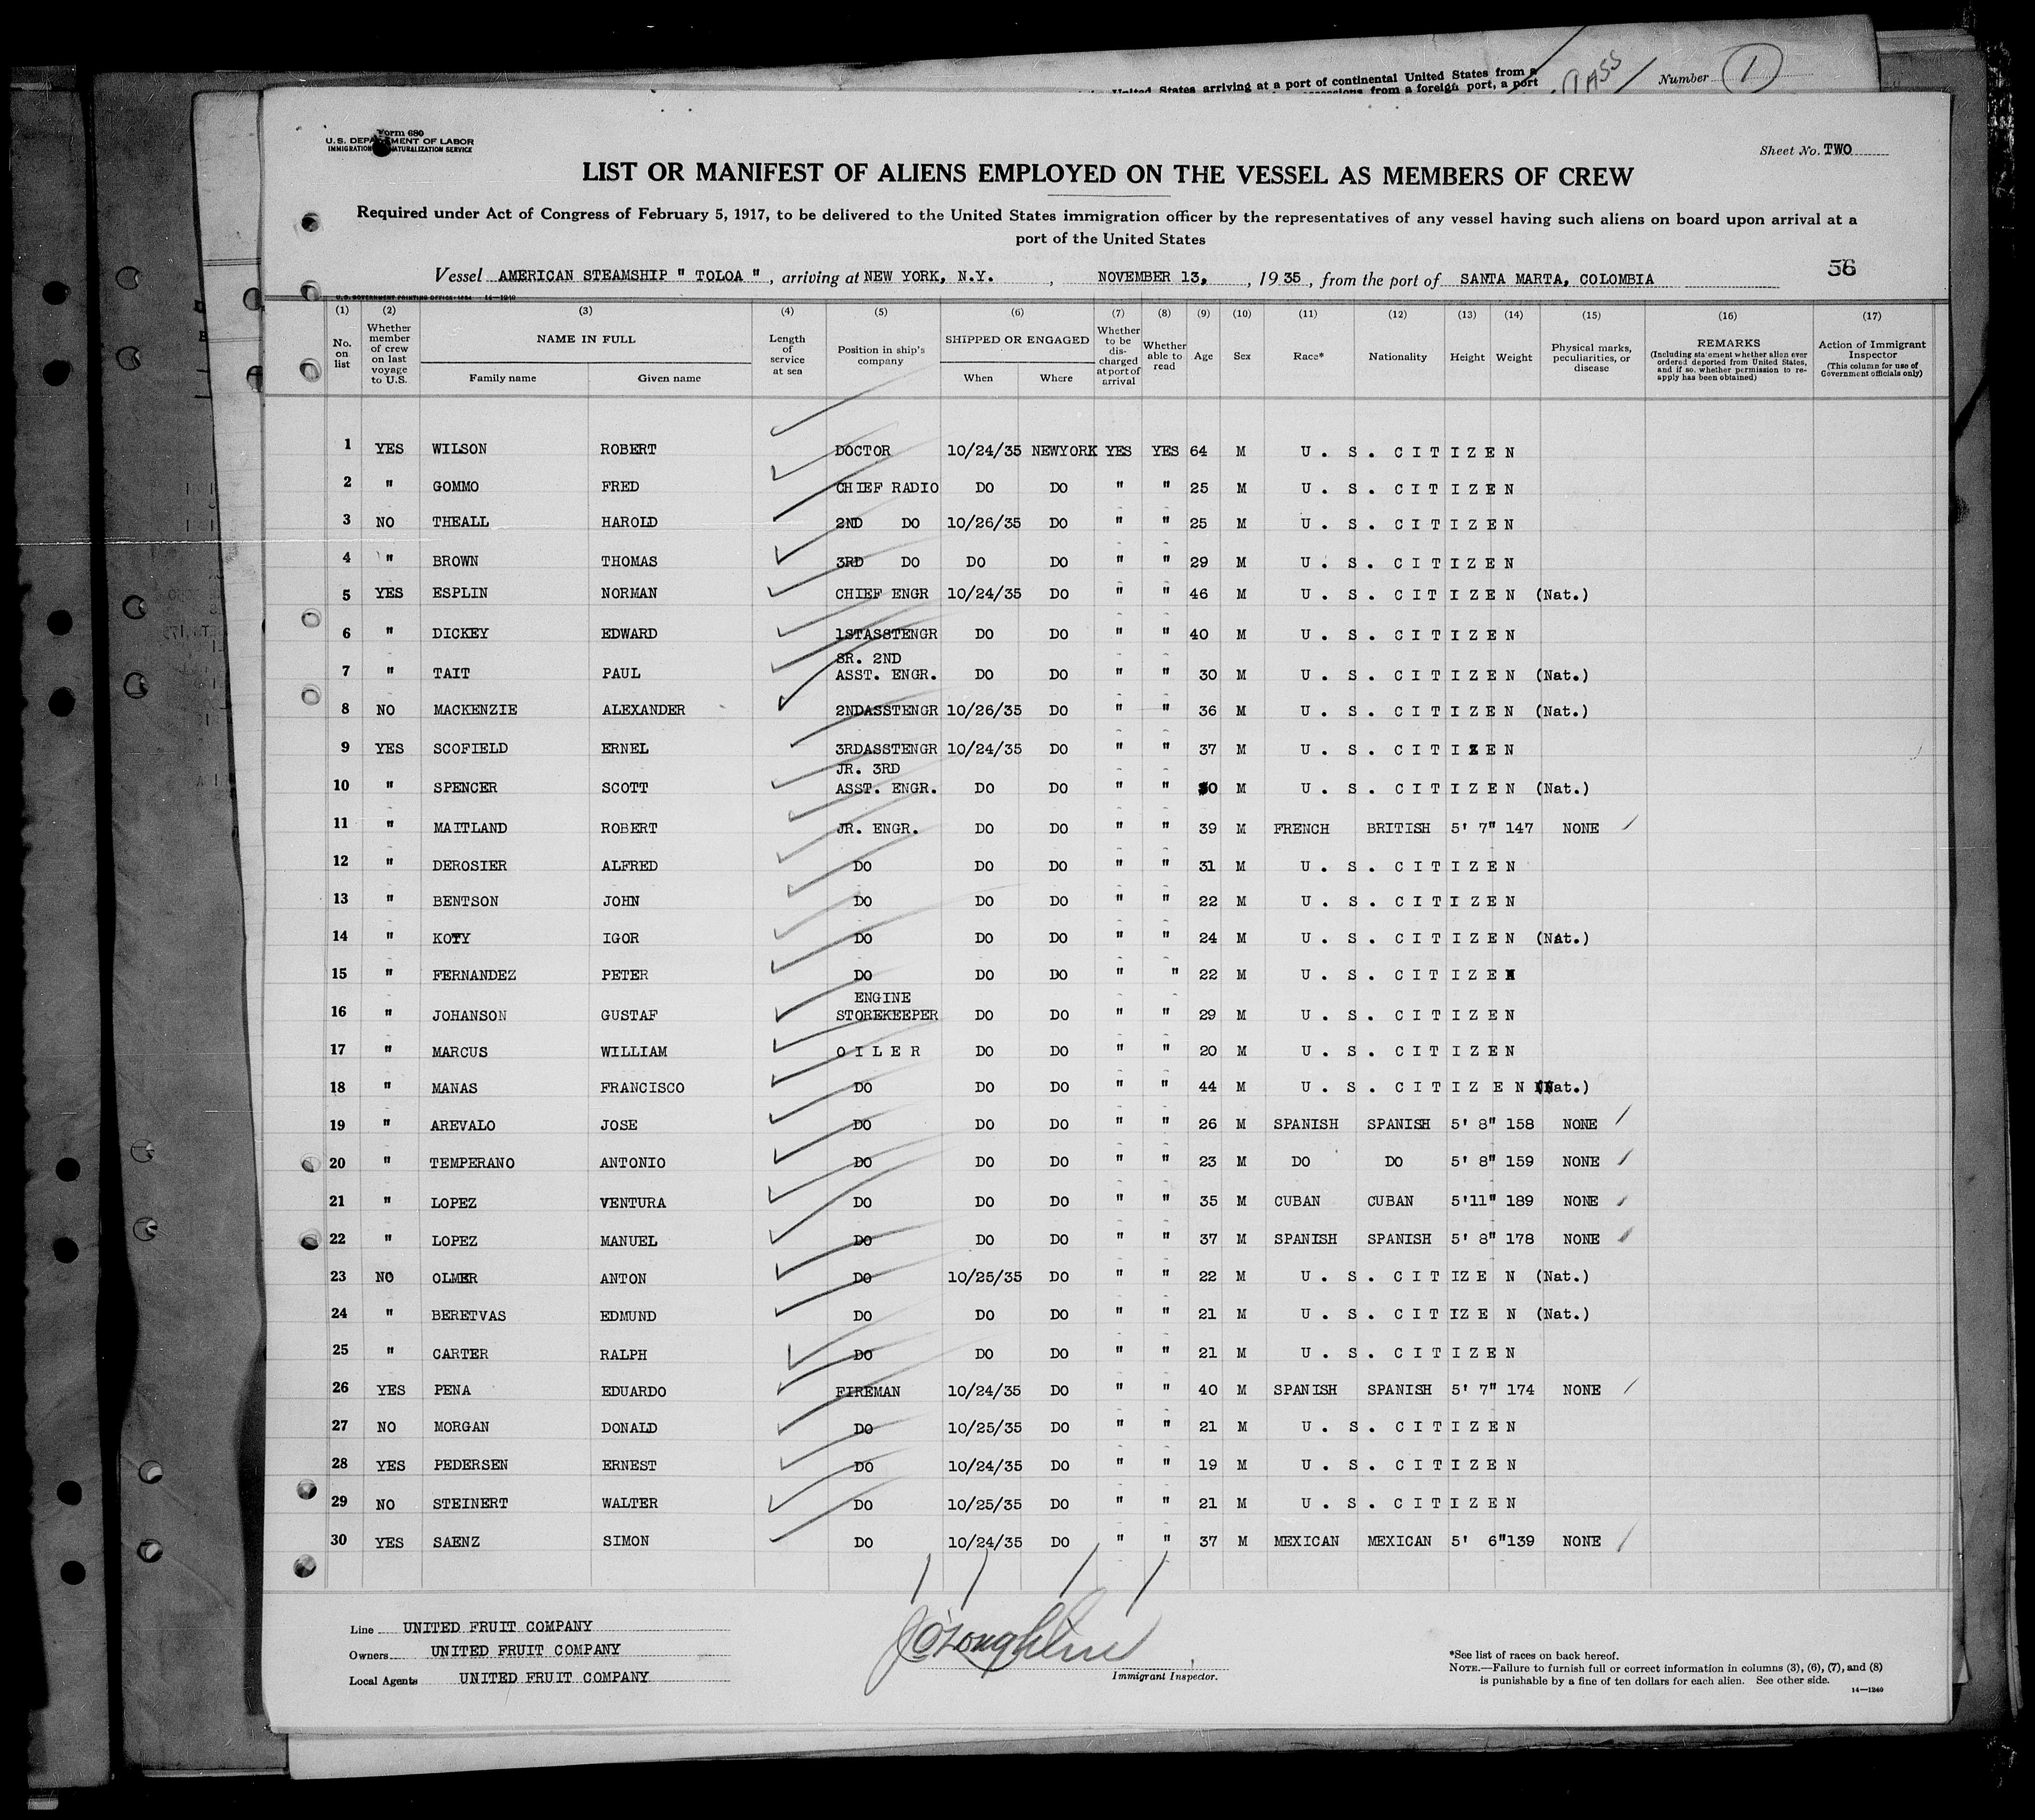 United States arriving at a port of continental United States from a
from a foreign port, a port
PASS
Number 1
Form 680
U.S. DEPARTMENT OF LABOR
IMMIGRATION NATURALIZATION SERVICE
Sheet No. TWO
LIST OR MANIFEST OF ALIENS EMPLOYED ON THE VESSEL AS MEMBERS OF CREW
Required under Act of Congress of February 5, 1917, to be delivered to the United States immigration officer by the representatives of any vessel having such aliens on board upon arrival at a
port of the United States
Vessel AMERICAN STEAMSHIP " TOLOA ", arriving at NEW YORK, N.Y., NOVEMBER 13, , 1935, from the port of SANTA MARTA, COLOMBIA
56
U.S. GOVERNMENT PRINTING OFFICE: 1934 14—1240
(1) (2) (3) (4) (5) (6) (7) (8) (9) (10) (11) (12) (13) (14) (15) (16) (17)
No. on list
Whether member of crew on last voyage to U.S.
NAME IN FULL
Family name Given name
Length of service at sea
Position in ship's company
SHIPPED OR ENGAGED
When Where
Whether to be discharged at port of arrival
Whether able to read
Age
Sex
Race*
Nationality
Height
Weight
Physical marks, peculiarities, or disease
REMARKS
(Including statement whether alien ever ordered deported from United States, and if so, whether permission to reapply has been obtained)
Action of Immigrant Inspector
(This column for use of Government officials only)
1 YES WILSON ROBERT DOCTOR 10/24/35 NEWYORK YES YES 64 M U. S. CITIZEN
2 " GOMMO FRED CHIEF RADIO DO DO " " 25 M U. S. CITIZEN
3 NO THEALL HAROLD 2ND DO 10/26/35 DO " " 25 M U. S. CITIZEN
4 " BROWN THOMAS 3RD DO DO DO " " 29 M U. S. CITIZEN
5 YES ESPLIN NORMAN CHIEF ENGR 10/24/35 DO " " 46 M U. S. CITIZEN (Nat.)
6 " DICKEY EDWARD 1STASSTENGR DO DO " " 40 M U. S. CITIZEN
7 " TAIT PAUL SR. 2ND ASST. ENGR. DO DO " " 30 M U. S. CITIZEN (Nat.)
8 NO MACKENZIE ALEXANDER 2NDASSTENGR 10/26/35 DO " " 36 M U. S. CITIZEN (Nat.)
9 YES SCOFIELD ERNEL 3RDASSTENGR 10/24/35 DO " " 37 M U. S. CITIZEN
10 " SPENCER SCOTT JR. 3RD ASST. ENGR. DO DO " " 30 M U. S. CITIZEN (Nat.)
11 " MAITLAND ROBERT JR. ENGR. DO DO " " 39 M FRENCH BRITISH 5' 7" 147 NONE
12 " DEROSIER ALFRED DO DO DO " " 31 M U. S. CITIZEN
13 " BENTSON JOHN DO DO DO " " 22 M U. S. CITIZEN
14 " KOTY IGOR DO DO DO " " 24 M U. S. CITIZEN (Nat.)
15 " FERNANDEZ PETER DO DO DO " " 22 M U. S. CITIZEN
16 " JOHANSON GUSTAF ENGINE STOREKEEPER DO DO " " 29 M U. S. CITIZEN
17 " MARCUS WILLIAM OILER DO DO " " 20 M U. S. CITIZEN
18 " MANAS FRANCISCO DO DO DO " " 44 M U. S. CITIZEN (Nat.)
19 " AREVALO JOSE DO DO DO " " 26 M SPANISH SPANISH 5' 8" 158 NONE
20 " TEMPERANO ANTONIO DO DO DO " " 23 M DO DO 5' 8" 159 NONE
21 " LOPEZ VENTURA DO DO DO " " 35 M CUBAN CUBAN 5'11" 189 NONE
22 " LOPEZ MANUEL DO DO DO " " 37 M SPANISH SPANISH 5' 8" 178 NONE
23 NO OLMER ANTON DO 10/25/35 DO " " 22 M U. S. CITIZEN (Nat.)
24 " BERETVAS EDMUND DO DO DO " " 21 M U. S. CITIZEN (Nat.)
25 " CARTER RALPH DO DO DO " " 21 M U. S. CITIZEN
26 YES PENA EDUARDO FIREMAN 10/24/35 DO " " 40 M SPANISH SPANISH 5' 7" 174 NONE
27 NO MORGAN DONALD DO 10/25/35 DO " " 21 M U. S. CITIZEN
28 YES PEDERSEN ERNEST DO 10/24/35 DO " " 19 M U. S. CITIZEN
29 NO STEINERT WALTER DO 10/25/35 DO " " 21 M U. S. CITIZEN
30 YES SAENZ SIMON DO 10/24/35 DO " " 37 M MEXICAN MEXICAN 5' 6" 139 NONE
Line UNITED FRUIT COMPANY
Owners UNITED FRUIT COMPANY
Local Agents UNITED FRUIT COMPANY
J O'Loughlin
Immigrant Inspector.
*See list of races on back hereof.
NOTE.—Failure to furnish full or correct information in columns (3), (6), (7), and (8)
is punishable by a fine of ten dollars for each alien. See other side.
14—1240